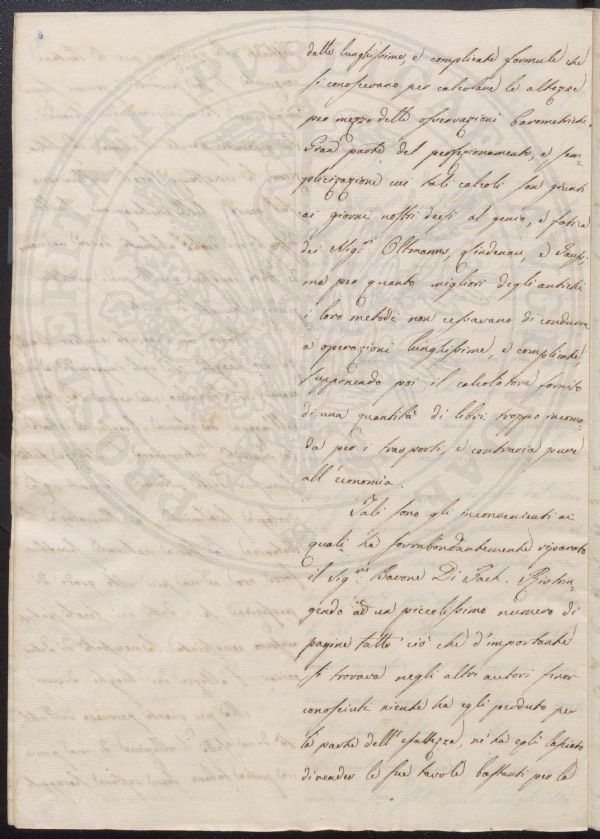 dalle lunghissime, e complicate formule che
si conoscevano per calcolare le altezze
per mezzo delle osservazioni barometriche.
Gran parte del perfezionamento, e sem=
plicizazione cui tali calcoli son giunti
ai giorni nostri deesi al genio, e fatica
dei Sig.ri Oltmanns, Lindenau, e Gauss,
ma per quanto migliori degli antichi
i loro metodi non cessavano di condurre
a operazioni lunghissime, e complicate,
supponendo poi il calcolatore fornito
di una quantità di libri troppo incomo=
da per i trasporti, e contraria pure
all'economia.
Tali sono gli inconvenienti ai
quali ha sovrabondantemente riparato
il Sig.re Barone Di Zach. Ristrin=
gendo ad un piccolissimo numero di
pagine tutto ciò che d'importante
si trovava negli altri autori finor
conosciuti niente ha egli perduto per
la parte dell'esattezza, nè ha egli lasciato
di render le sue tavole bastanti per la